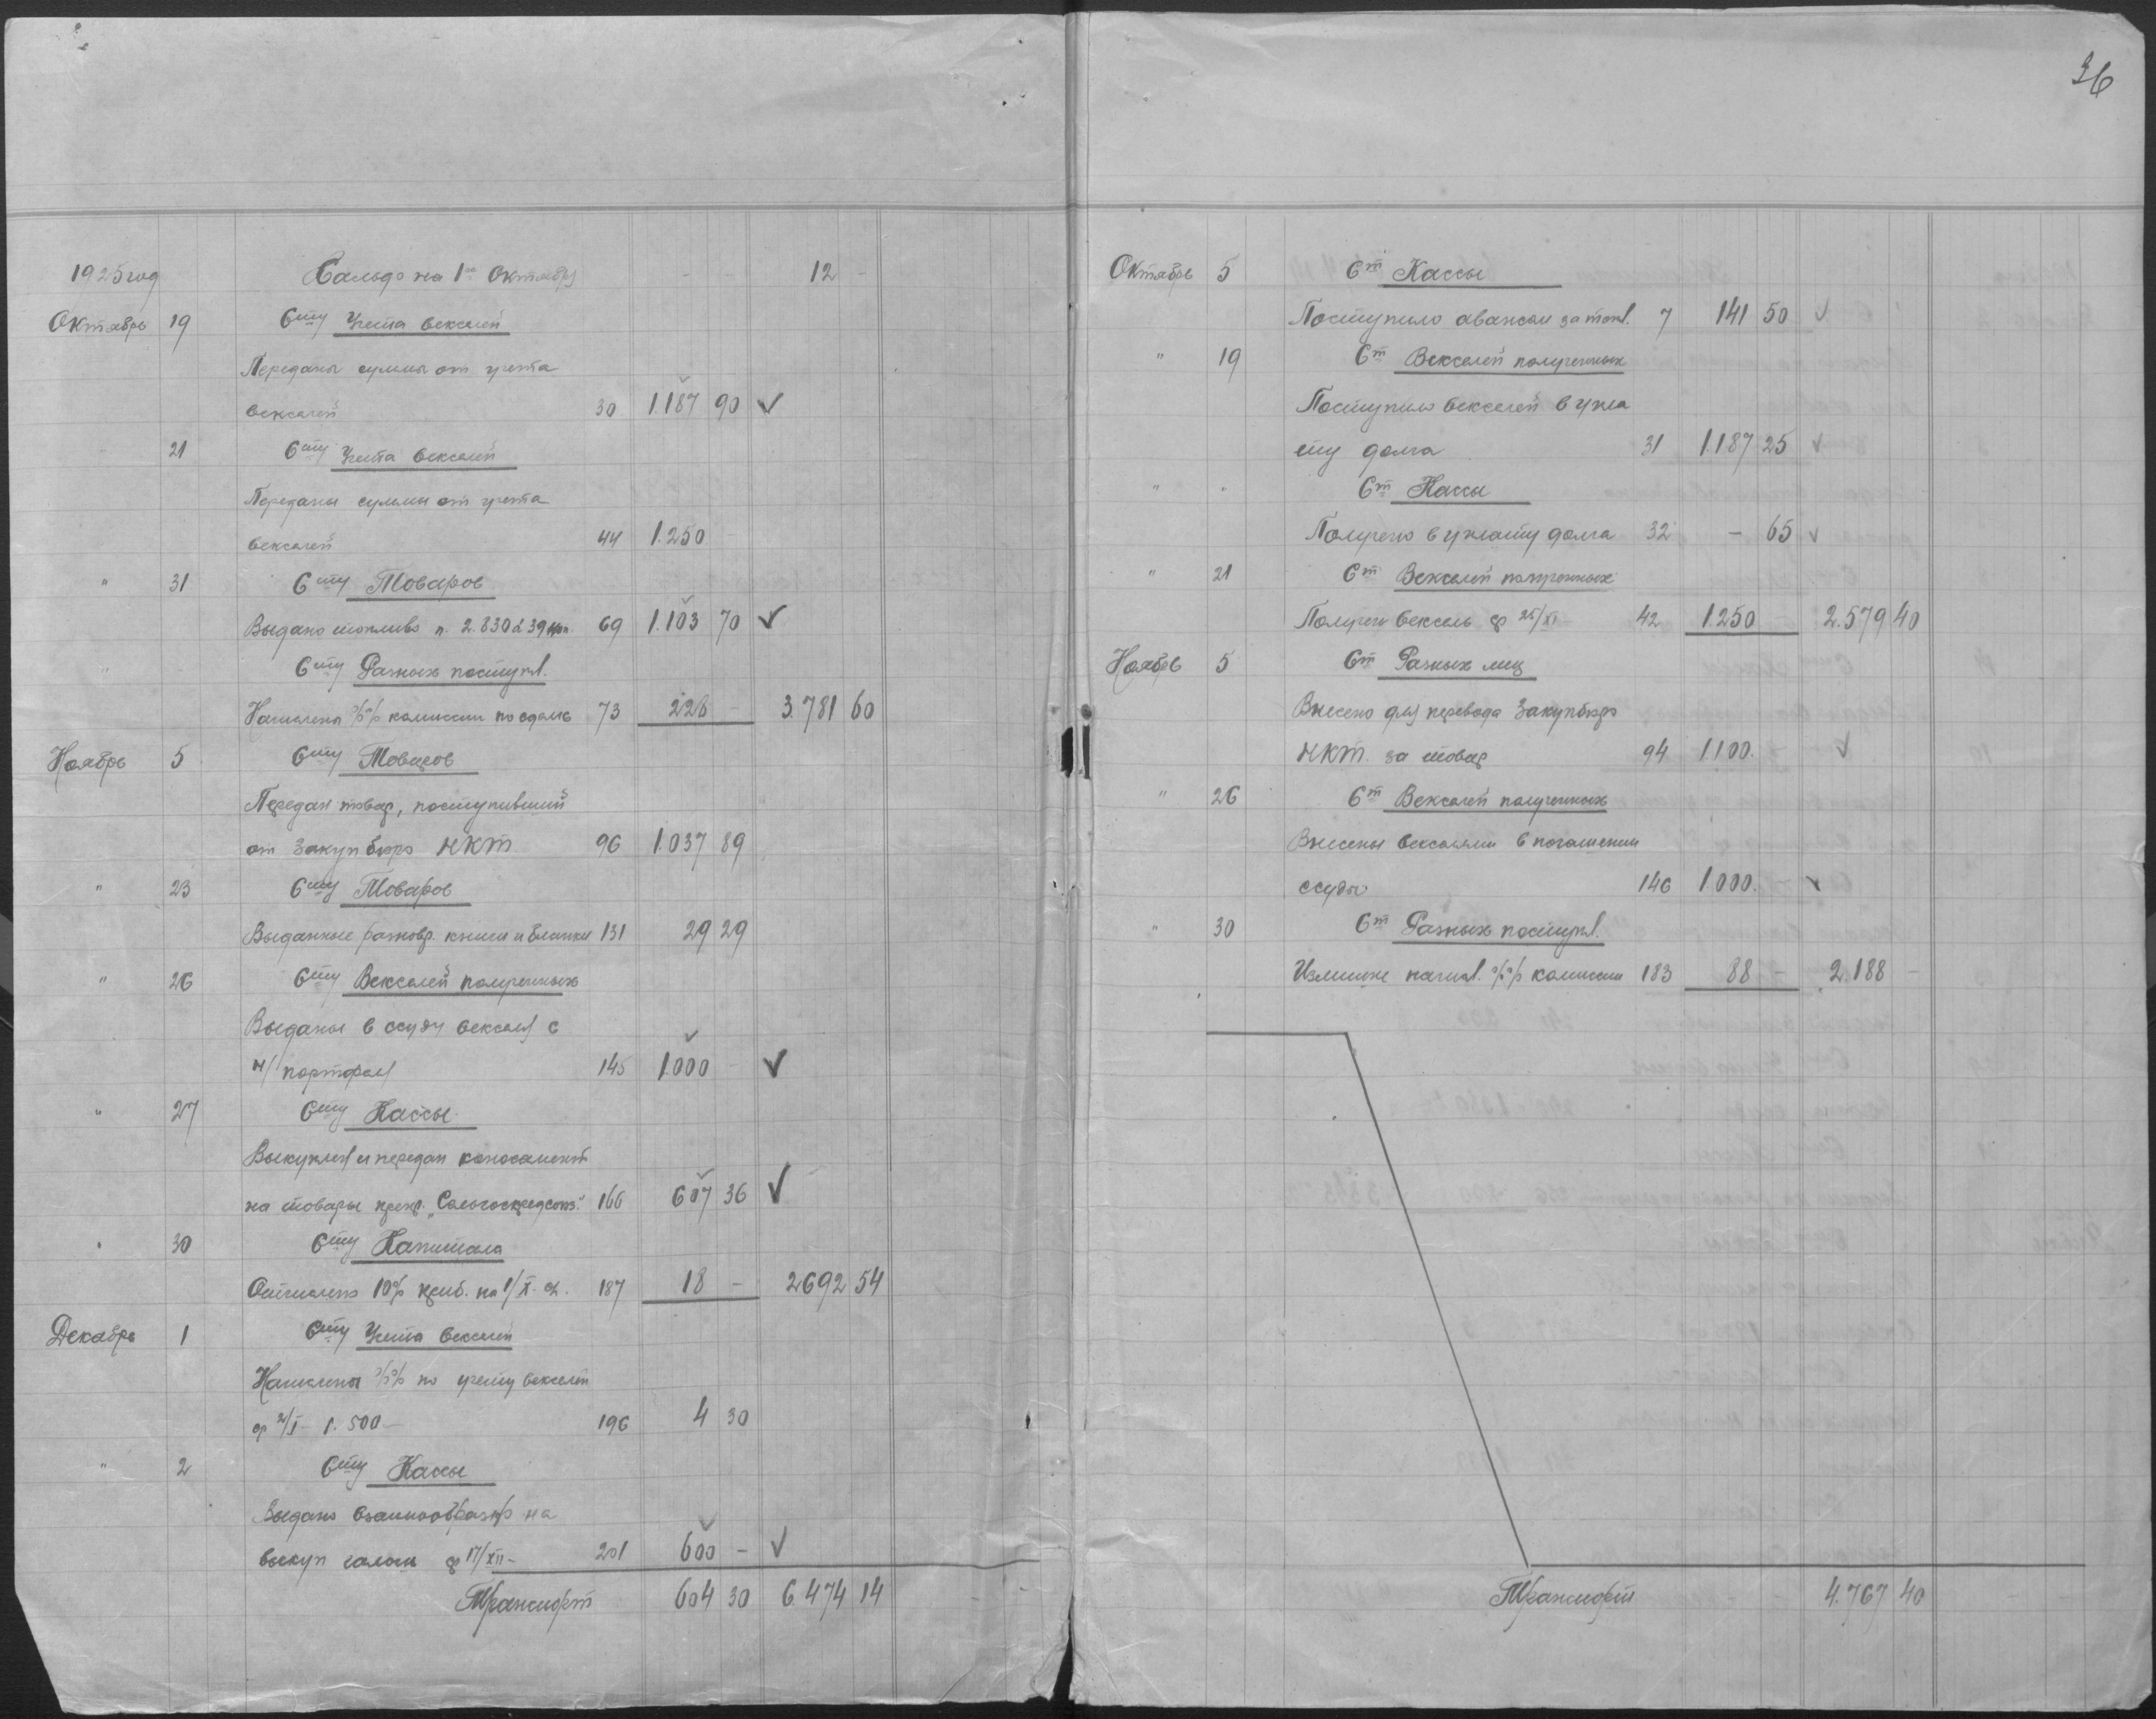 36
1925 год Сальдо на 1ое Октября - - 12 -
Октябрь 19 Счту Учета векселей
Переданы суммы от учета
векселей 30 1.187 90 ✓
21 Счту Учета векселей
Переданы суммы от учета
векселей 44 1.250 -
" 31 Счту Товаров
Выдано топливо п. 2.830 à 39 коп. 69 1.103 70 ✓
" Счту Разных поступл.
Начислены %% комиссии по сдаче 73 226 - 3.781 60
Ноябрь 5 Счту Товаров
Передан товар, поступивший
от Закупбюро НКТ 96 1.037 89
" 23 Счту Товаров
Выданные разновр. книги и бланки 131 29 29
" 26 Счту Векселей полученных
Выданы в ссуду векселя с
н/портфеля 145 1.000 - ✓
" 27 Счту Кассы
Выкуплен и передан коносамент
на товары 166 607 36 ✓
" 30 Счту Капитала
Отчислено 10% приб. на 1/X- 187 18 - 2692 54
Декабрь 1 Счту Учета векселей
Начислены %% по учету векселей
1.500- 196 4 30
" 2 Счту Кассы
Выдано взаимообразно на
выкуп 17/XII- 201 600 - ✓
Транспорт 604 30 6.474 14
Октябрь 5 Сч Кассы
Поступило авансом за топл. 7 141 50 ✓
" 19 Сч Векселей полученных
Поступило векселей в упла
ту долга 31 1.187 25 ✓
" " Сч Кассы
Получено в уплату долга 32 - 65 ✓
" 21 Сч Векселей полученных
Получен вексель ср 25/XI- 42 1.250 - 2.579 40
Ноябрь 5 Сч Разных лиц
Внесено для перевода Закупбюро
НКТ. за товар 94 1.100. - ✓
" 26 Сч Векселей полученных
Внесены векселями в погашении
ссуды 146 1.000. - ✓
" 30 Сч Разных поступл.
Излишне начисл. %% комиссии 183 88 - 2.188 -
Транспорт - - 4.767 40